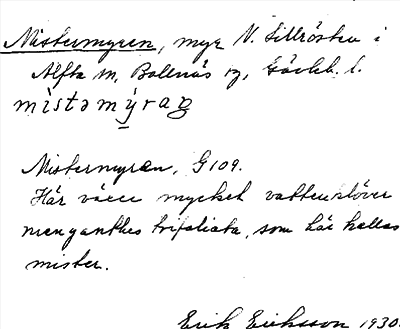 Mistermyren, myr V. Sillrösten i
Alfta sn, Bollnäs tg, Gävleb. l.
mistəmy̱raṉ
Mistermyren, G 109.
Här växer mycket vattenklöver
menyanthes trifoliata, som här kallas
mister.
Erik Eriksson 1930.